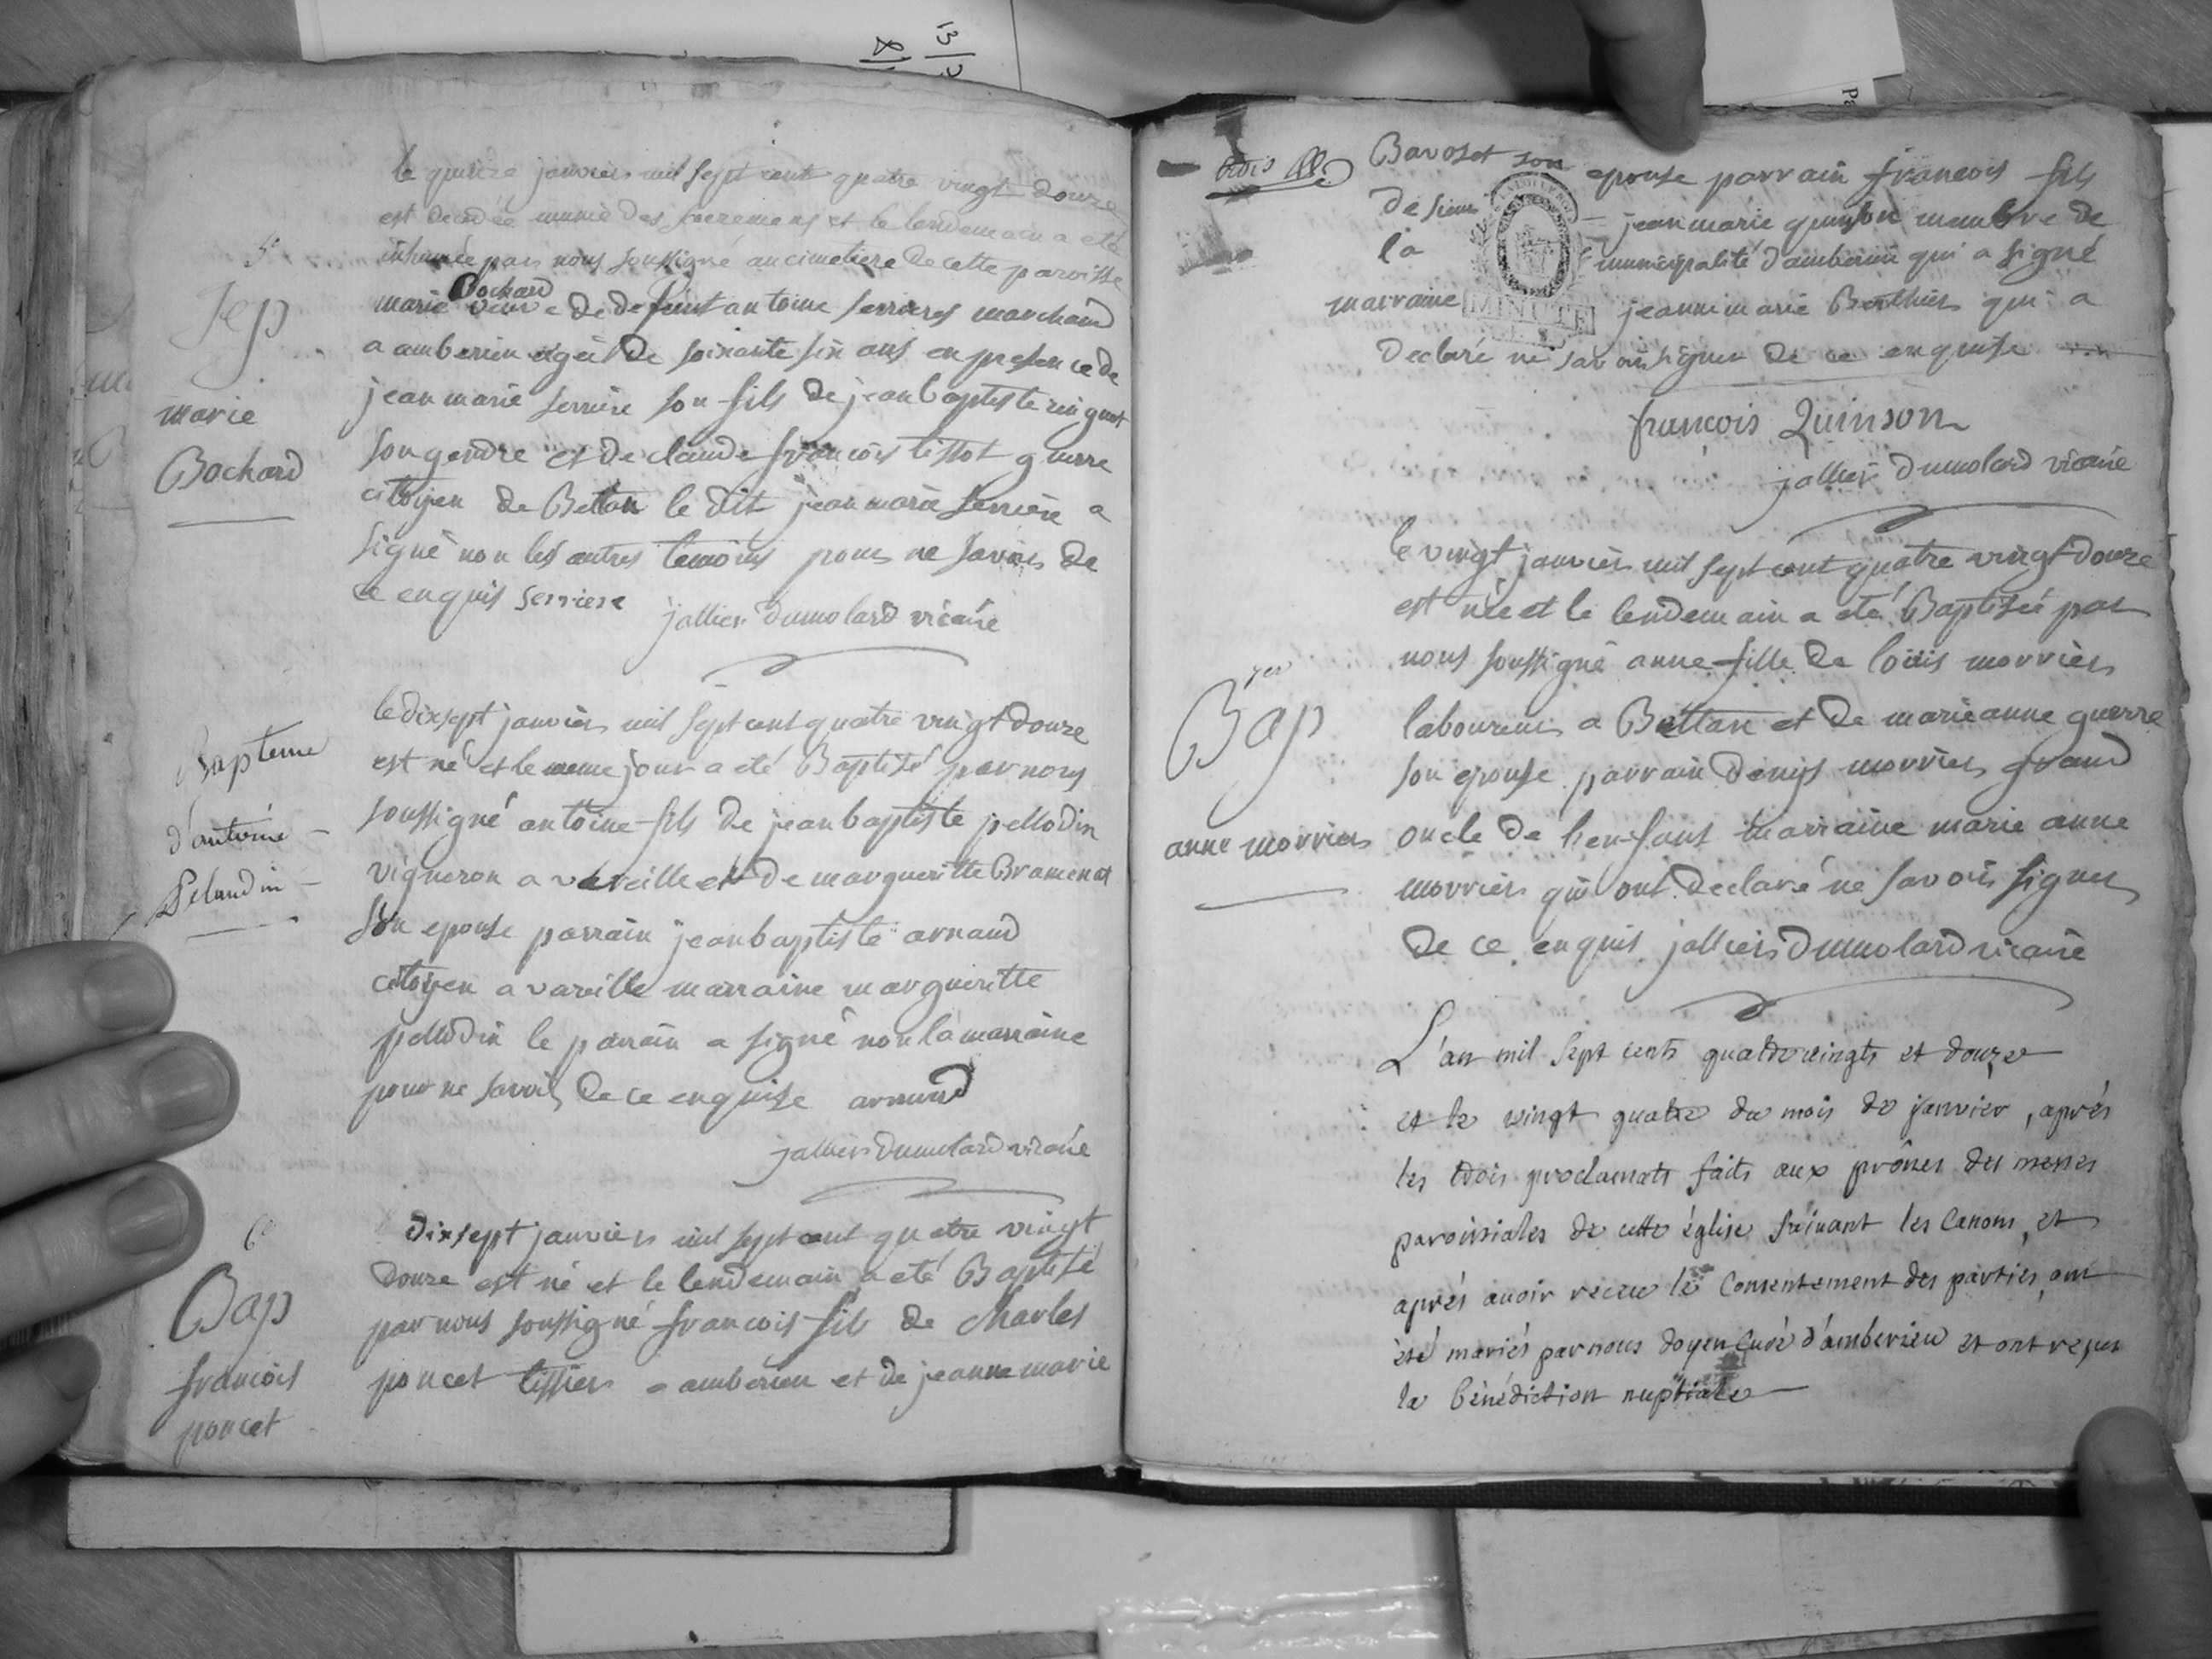 5e
Sep
marie
Bochard
le quinze janvier mil sept cent quatre vingt douze
est decedée munie des sacremens et le lendemain a eté
inhumée par nous soussigné au cimetiere de cette paroisse
Bochard
marie veuve de defunt antoine serrieres marchand
a amberieu agée de soixante six ans en presence de
jean marie serriere son fils de jean baptiste
son gendre et de claude francois tissot guerre
citoyen de Bettan le dit jean marie serriere a
signé non les autres temoins pour ne savoir de
ce enquis serriere
jallier dumolard vicaire
Bapteme
d'antoine
Pelaudin
le dixsept janvier mil sept cent quatre vingt douze
est né et le meme jour a eté Baptisé par nous
soussigné antoine fils de jean baptiste pellodin
vigneron a vareille et de margueritte Bramenat
son epouse parrain jean baptiste arnaud
citoyen a vareille marraine margueritte
pellodin le parrain a signé non la marraine
pour ne savoir de ce enquise arnaud
jallier dumolard vicaire
6e
Bap
francois
poncet
dixsept janvier mil sept cent quatre vingt
douze est né et le lendemain a eté Baptisé
par nous soussigné francois fils de Charles
poncet tissier a amberieu et de jeanne marie
trois
Bavoset son epouse parrain francois fils
de sieur jean marie quinson membre de
la municipalité d'amberieu qui a signé
marraine MINUTE jeanne marie Berthier qui a
declaré ne savoir signer de ce enquise
francois Quinson
jallier dumolard vicaire
7em
Bap
anne morrier
le vingt janvier mil sept cent quatre vingt douze
est née et le lendemain a eté Baptisée par
nous soussigné anne fille de louis morrier
laboureur a Bettan et de marie anne guerre
son epouse parrain denis morrier grand
oncle de l'enfant marraine marie anne
morrier qui ont declaré ne savoir signer
de ce enquis jallier dumolard vicaire
L'an mil sept cents quatrevingts et douze
et le vingt quatre du mois de janvier, aprés
les trois proclamats faits aux prônes des messes
paroissiales de cette église suivant les Canons, et
aprés avoir recu le Consentement des parties, ont
eté mariés par nous doyen Curé d'amberieu et ont reçus
la bénédiction nuptiale